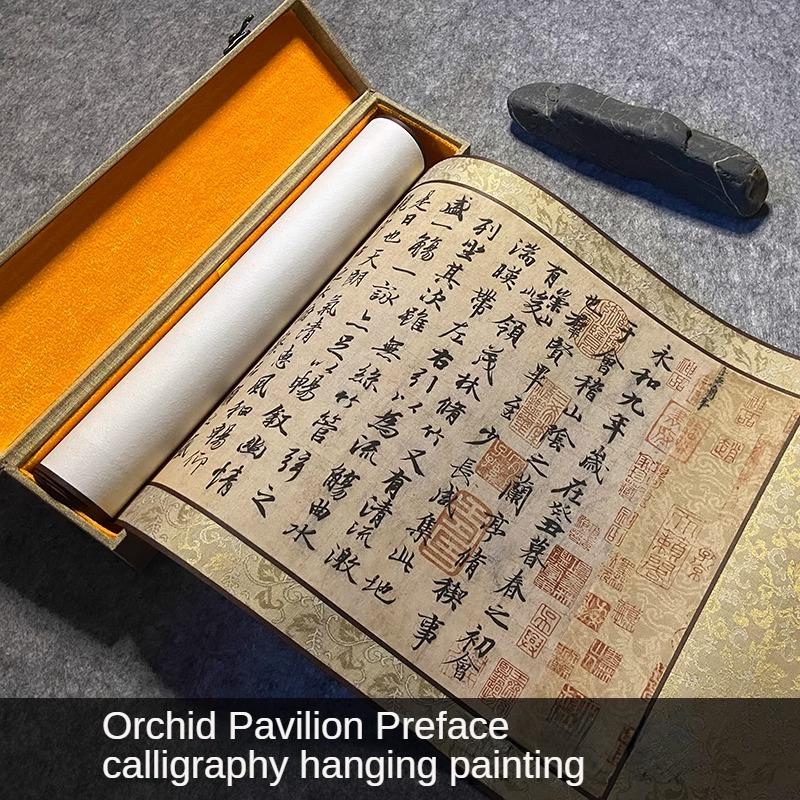 永和九年歲在癸丑暮春之初會
于會稽山陰之蘭亭脩稧事
也羣賢畢至少長咸集此地
有崇山峻領茂林脩竹又有清流激
湍暎帶左右引以為流觴曲水
列坐其次雖無絲竹管弦之
盛一觴一詠亦足以暢叙幽情
是日也天朗氣清惠風和暢仰
Orchid Pavilion Preface
calligraphy hanging painting